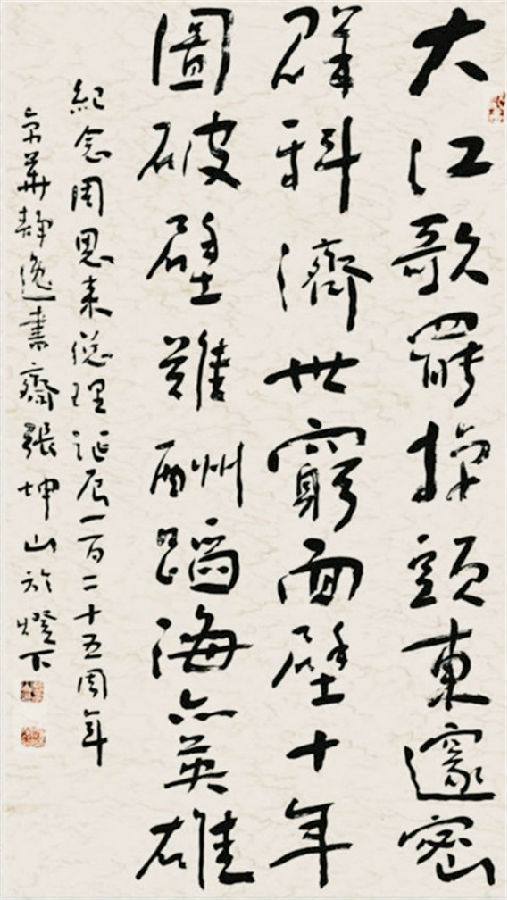 大江歌罷掉頭東邃密
群科濟世窮面壁十年
圖破壁難酬蹈海亦英雄
紀念周恩来總理誕辰一百二十五周年
京華靜逸書齋張坤山於燈下